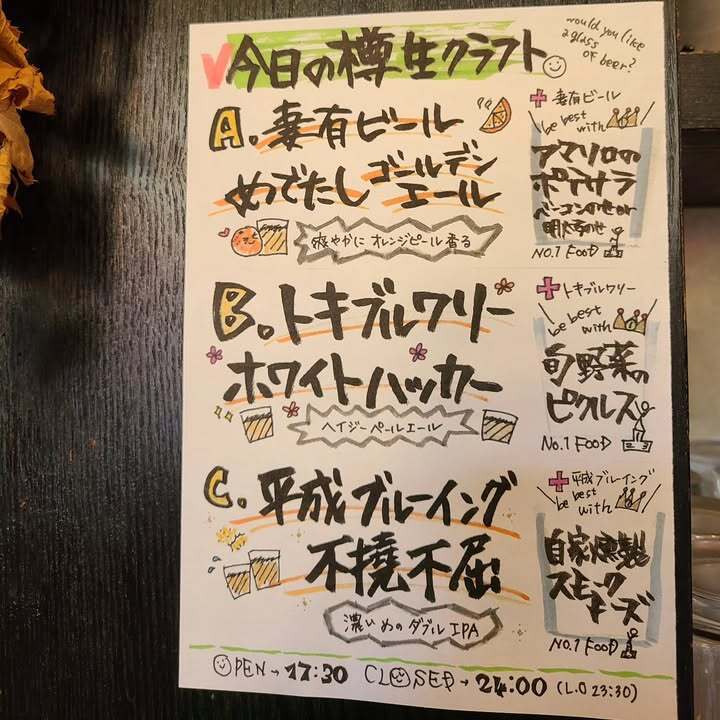 今日の樽生クラフト
would you like
a glass
of beer?
A. 妻有ビール
めでたし ゴールデン
エール
爽やかに オレンジピール香る
+ 妻有ビール
be best
with
アマリロの
ポテサラ
ベーコンのせor
明太子のせ
NO.1 FOOD
B. トキブルワリー
ホワイトハッカー
ヘイジーペールエール
+ トキブルワリー
be best
with
旬野菜の
ピクルス
NO.1 FOOD
C. 平成ブルーイング
不撓不屈!
濃いめのダブルIPA
+ 平成ブルーイング
be best
with
自家燻製
スモーク
チーズ
NO.1 FOOD
OPEN→17:30 CLOSED→24:00 (L.O 23:30)